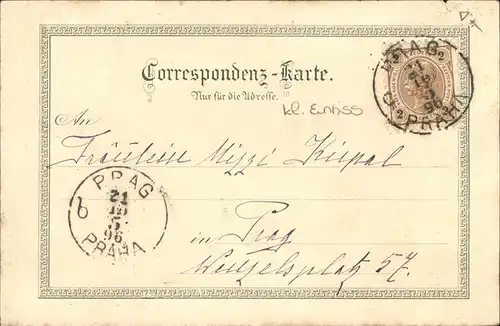 Correspondenz-Karte.
Nur für die Adresse.
kl. Einriss
An
Fräulein Mizzi
in Prag
Wenzelsplatz 57.
PRAG
21
96
PRAHA
PRAG
96
PRAHA
2 2
2